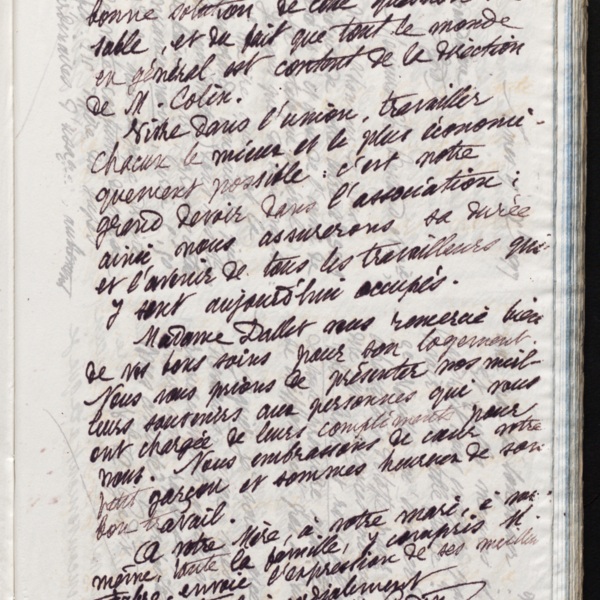 bonne solution de cette question
sable, et du fait que tout le monde
en général est content de la direction
de M. Colin.
Vivre dans l'union, travailler
chacun le mieux et le plus économi-
quement possible : c'est notre
grand devoir dans l'association ;
ainsi nous assurerons sa durée
et l'avenir de tous les travailleurs qui
y sont aujourd'hui occupés.
Madame Dallet nous remercie bien
de vos bons soins pour son logement.
Nous vous prions de présenter nos meil-
leurs souvenirs aux personnes qui vous
ont chargée de leurs compliments pour
nous. Nous embrassons de cœur votre
petit garçon et sommes heureux de son
bon travail.
A votre Mère, à votre mari, à vous
même, toute la famille, y compris M
envoie l'expression de ses meilleurs
cordialement